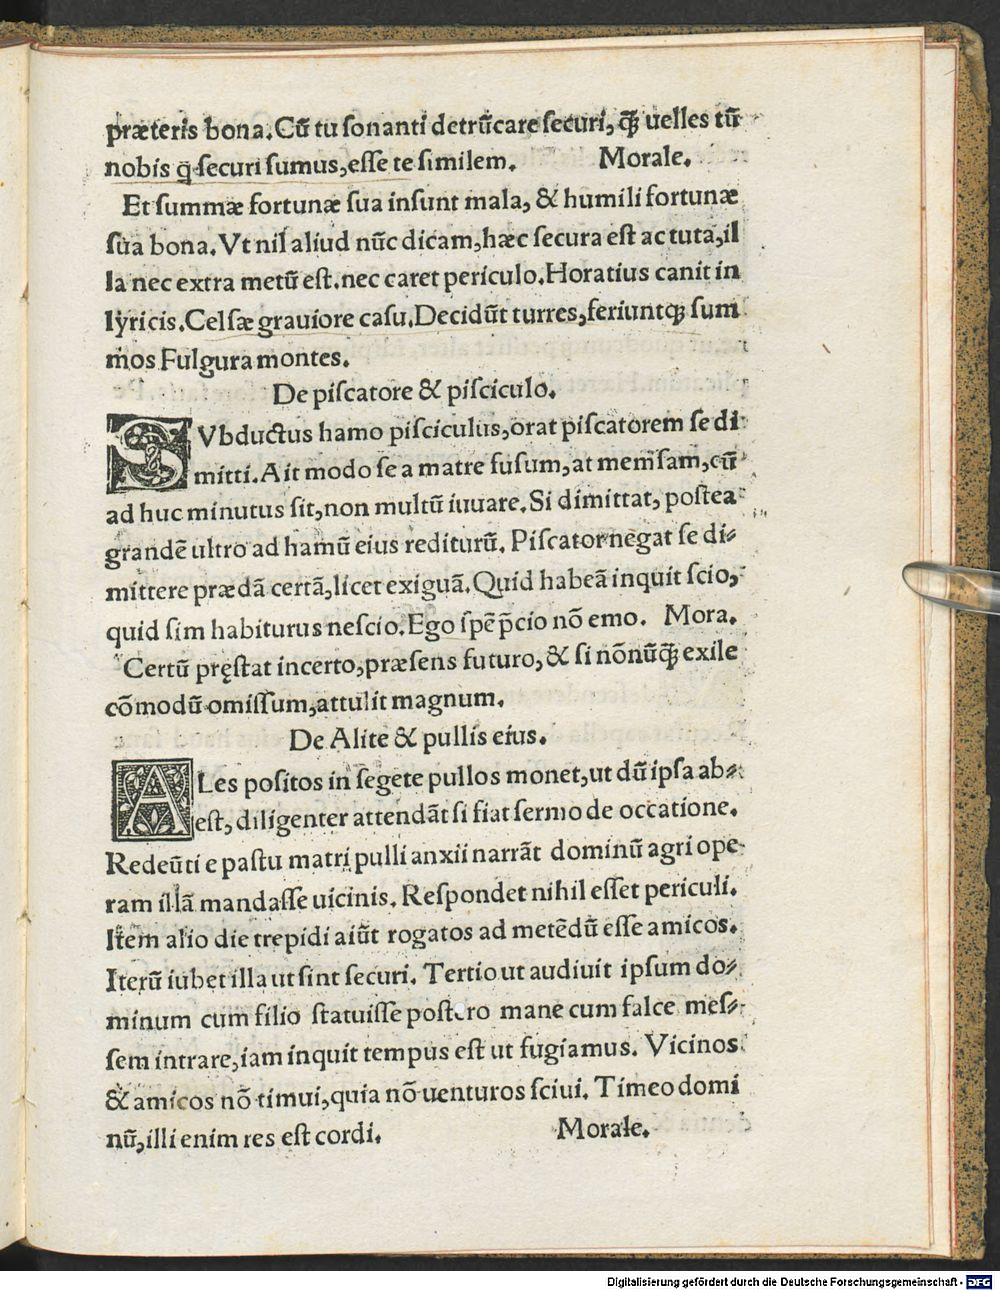 præteris bona.Cū tu ſonanti detrūcare ſecuri, qꝫ̄ uelles tū
nobis q̄ ſecuri ſumus,eſſe te ſimilem. Morale.
Et ſummæ fortunæ ſua inſunt mala, & humili fortunæ
ſua bona.Vt nil aliud nūc dicam,hæc ſecura eſt ac tuta,il
la nec extra metū eſt.nec caret periculo.Horatius canit in
lyricis.Celſæ grauiore caſu.Decidūt turres,feriuntqꝫ ſum
mos Fulgura montes.
De piſcatore & piſciculo.
SVbductus hamo piſciculus,orat piſcatorem ſe di
mitti.Ait modo ſe a matre fuſum,at menſam,cū
ad huc minutus ſit,non multū iuuare.Si dimittat, poſtea
grandē ultro ad hamū eius rediturū. Piſcator negat ſe di⸗
mittere prædā certā,licet exiguā.Quid habeā inquit ſcio,
quid ſim habiturus neſcio.Ego ſpē p̄cio nō emo. Mora.
Certū pręſtat incerto,præſens futuro,& ſi nōnūqꝫ̄ exile
cōmodū omiſſum,attulit magnum.
De Alite & pullis eius.
ALes poſitos in ſegete pullos monet,ut dū ipſa ab⸗
eſt, diligenter attendāt ſi fiat ſermo de occatione.
Redeūti e paſtu matri pulli anxii narrāt dominū agri ope
ram illā mandaſſe uicinis. Reſpondet nihil eſſet periculi.
Item alio die trepidi aiūt rogatos ad metēdū eſſe amicos.
Iterū iubet illa ut ſint ſecuri. Tertio ut audiuit ipſum do⸗
minum cum filio ſtatuiſſe poſtero mane cum falce meſ⸗
ſem intrare,iam inquit tempus eſt ut fugiamus. Vicinos
& amicos nō timui,quia nō uenturos ſciui. Timeo domi
nū,illi enim res eſt cordi. Morale.
Digitalisierung gefördert durch die Deutsche Forschungsgemeinschaft - DFG